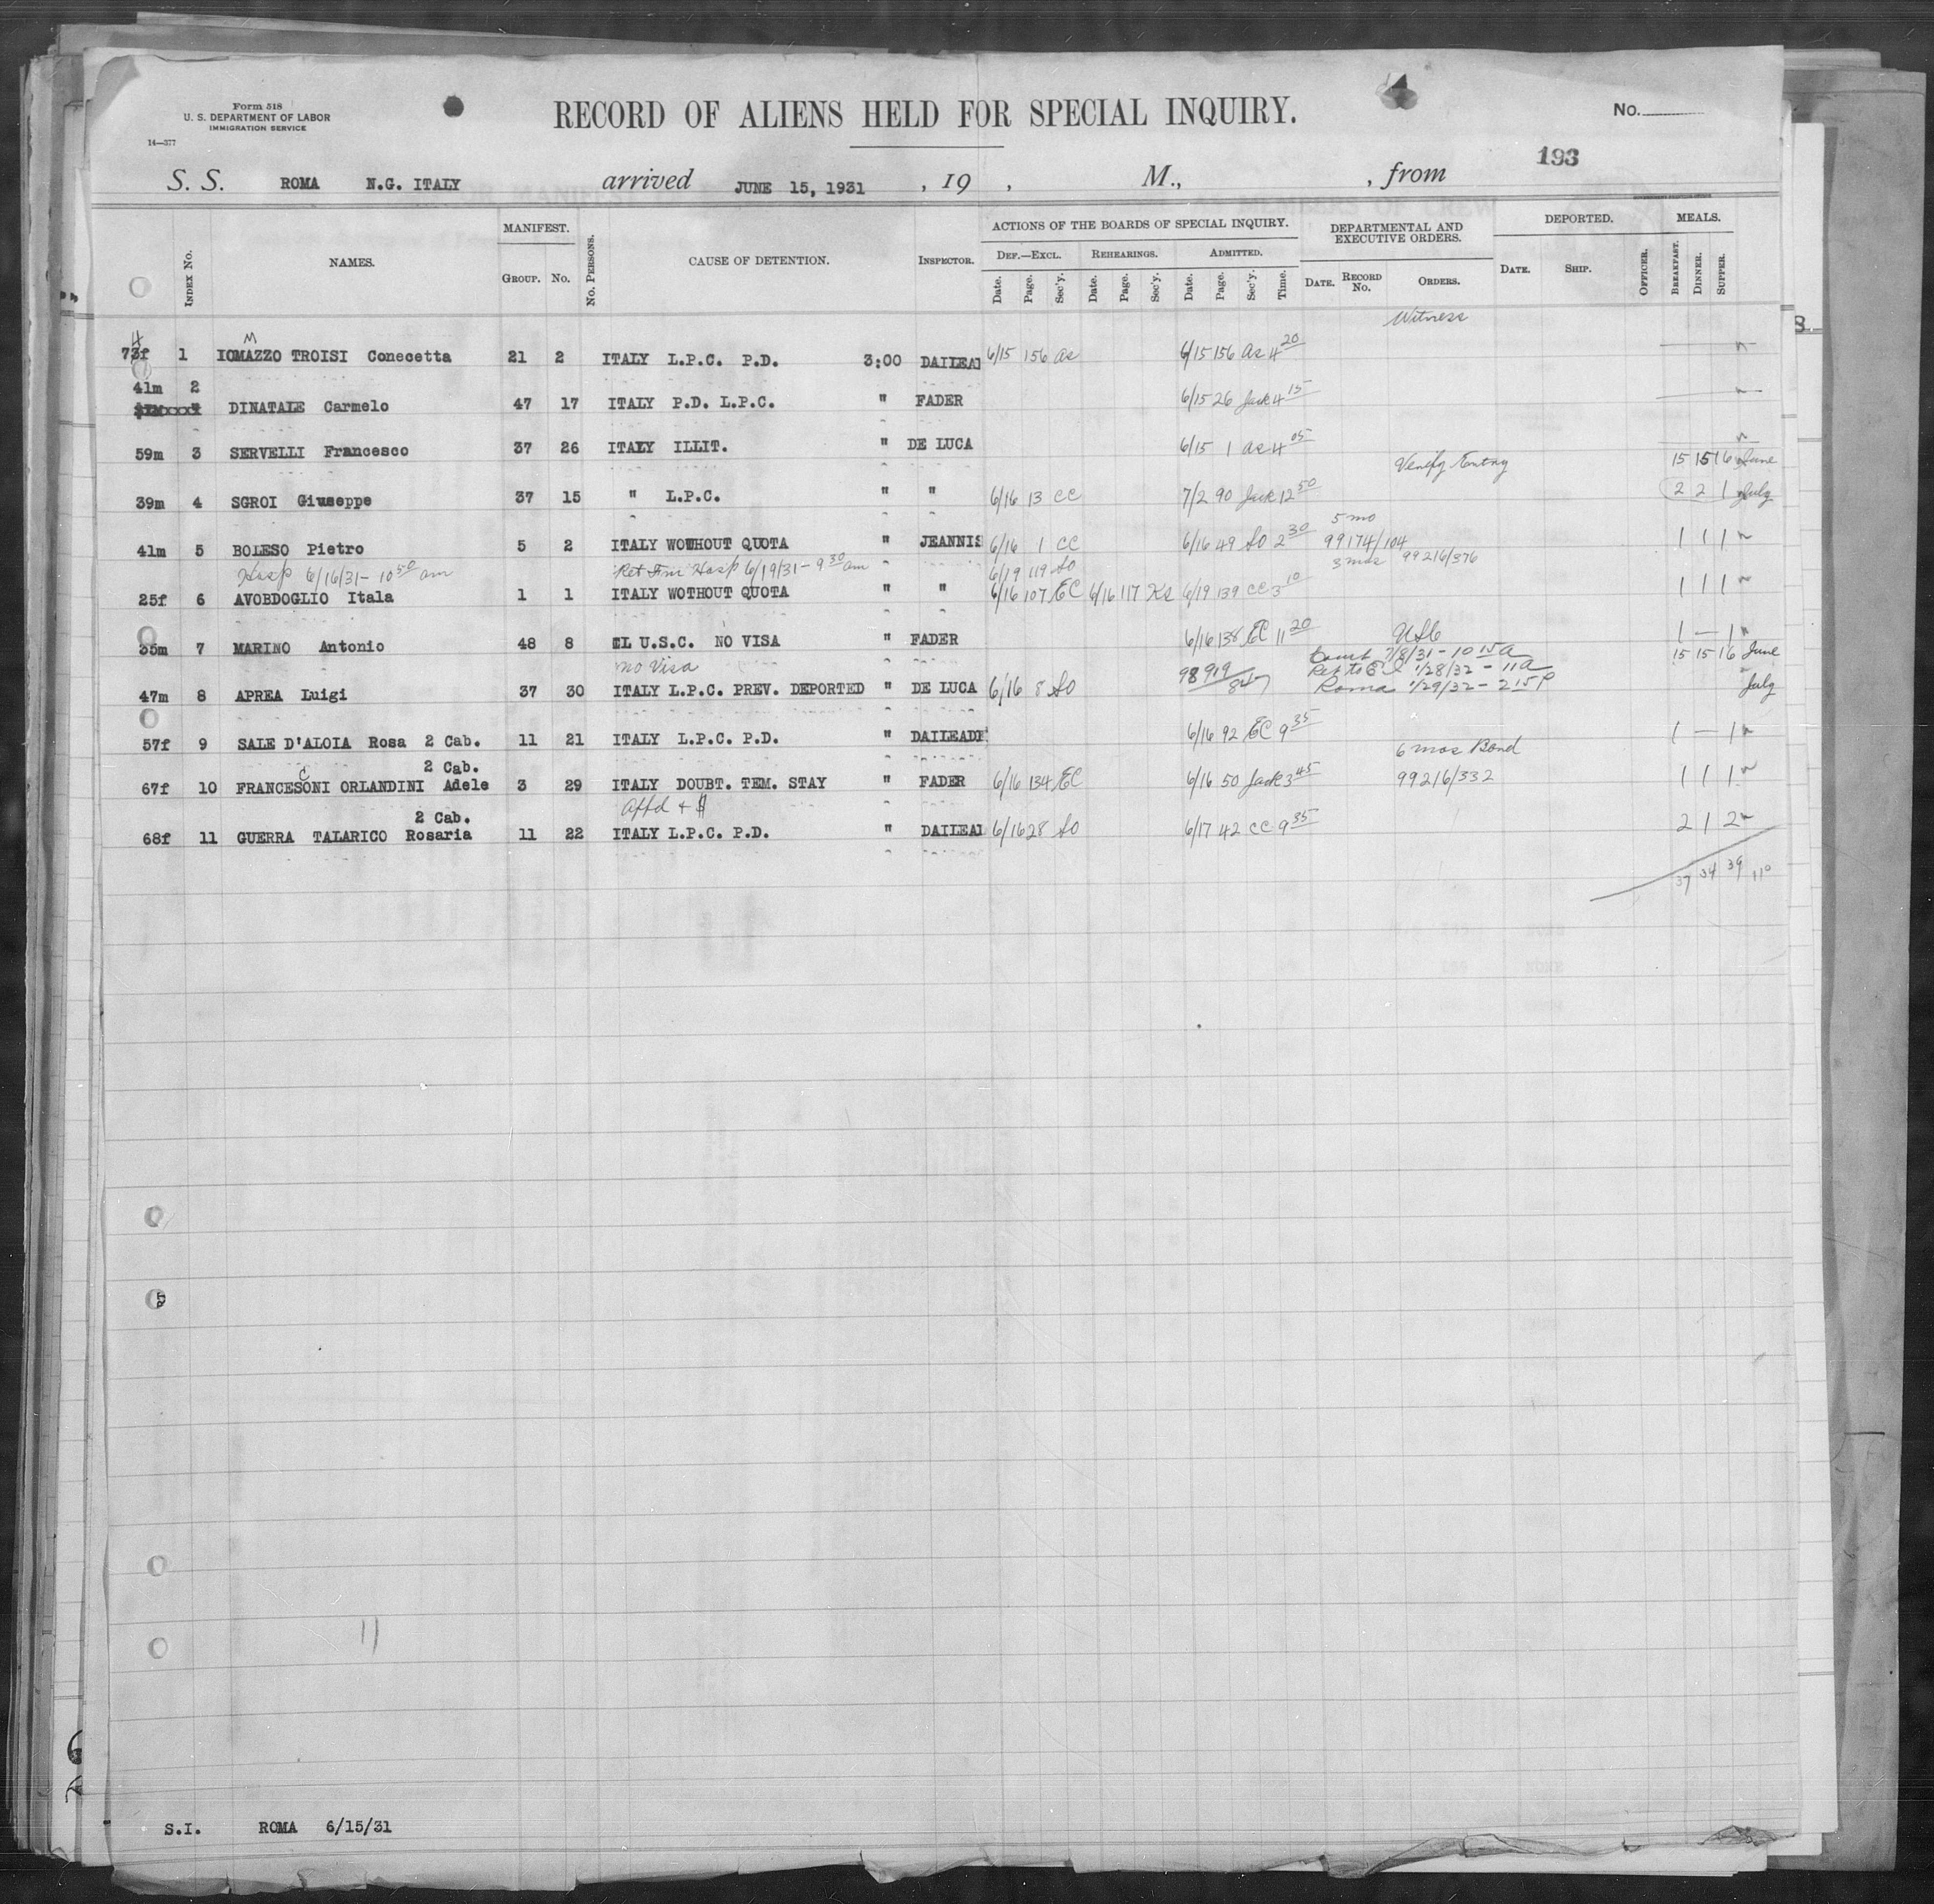 Form 518
U. S. DEPARTMENT OF LABOR
IMMIGRATION SERVICE
14—377
RECORD OF ALIENS HELD FOR SPECIAL INQUIRY.
No.
193
S. S. ROMA N.G. ITALY arrived JUNE 15, 1931 , 19 , M., , from
INDEX No. NAMES. MANIFEST. GROUP. No. No. PERSONS. CAUSE OF DETENTION. INSPECTOR.
ACTIONS OF THE BOARDS OF SPECIAL INQUIRY. DEF.—EXCL. Date. Page. Sec'y. REHEARINGS. Date. Page. Sec'y. ADMITTED. Date. Page. Sec'y. Time.
DEPARTMENTAL AND EXECUTIVE ORDERS. DATE. RECORD No. ORDERS.
DEPORTED. DATE. SHIP. OFFICER.
MEALS. BREAKFAST. DINNER. SUPPER.
Witness
M
73f 1 IOMAZZO TROISI Conecetta 21 2 ITALY L.P.C. P.D. 3:00 DAILEAD 6/15 156 as 6/15 156 as 4 20
41m 2
DINATALE Carmelo 47 17 ITALY P.D. L.P.C. " FADER 6/15 26 Jack 4 15
59m 3 SERVELLI Francesco 37 26 ITALY ILLIT. " DE LUCA 6/15 1 as 4 05
Verify Entry 15 15 16 June
39m 4 SGROI Giuseppe 37 15 " L.P.C. " " 6/16 13 CC 7/2 90 Jack 12 50 2 2 1 July
5 mo
41m 5 BOLESO Pietro 5 2 ITALY WOTHOUT QUOTA " JEANNIS 6/16 1 CC 6/16 49 SO 2 30 99174/104 1 1 1
Hosp 6/16/31 - 10 50 am Ret Frm Hosp 6/19/31 - 9 30 am 6/19 119 SO 3 mos 99216/376
25f 6 AVOBDOGLIO Itala 1 1 ITALY WOTHOUT QUOTA " " 6/16 107 EC 6/16 117 Ks 6/19 139 CC 3 10 1 1 1
35m 7 MARINO Antonio 48 8 CL U.S.C. NO VISA " FADER 6/16 138 EC 11 20 USC 1 — 1
no Visa Court 7/8/31 - 10 15 A 15 15 16 June
98919/847 Ret to E I 1/28/32 - 11 A
47m 8 APREA Luigi 37 30 ITALY L.P.C. PREV. DEPORTED " DE LUCA 6/16 8 SO Roma 1/29/32 - 2 15 P July
57f 9 SALE D'ALOIA Rosa 2 Cab. 11 21 ITALY L.P.C. P.D. " DAILEADE 6/16 92 EC 9 35 1 — 1
2 Cab. 6 mos Bond
C
67f 10 FRANCESONI ORLANDINI Adele 3 29 ITALY DOUBT. TEM. STAY " FADER 6/16 134 EC 6/16 50 Jack 3 45 99216/332 1 1 1
2 Cab. Affd + $
68f 11 GUERRA TALARICO Rosaria 11 22 ITALY L.P.C. P.D. " DAILEAD 6/16 28 SO 6/17 42 CC 9 35 2 1 2
37 34 39 110
11
S.I. ROMA 6/15/31